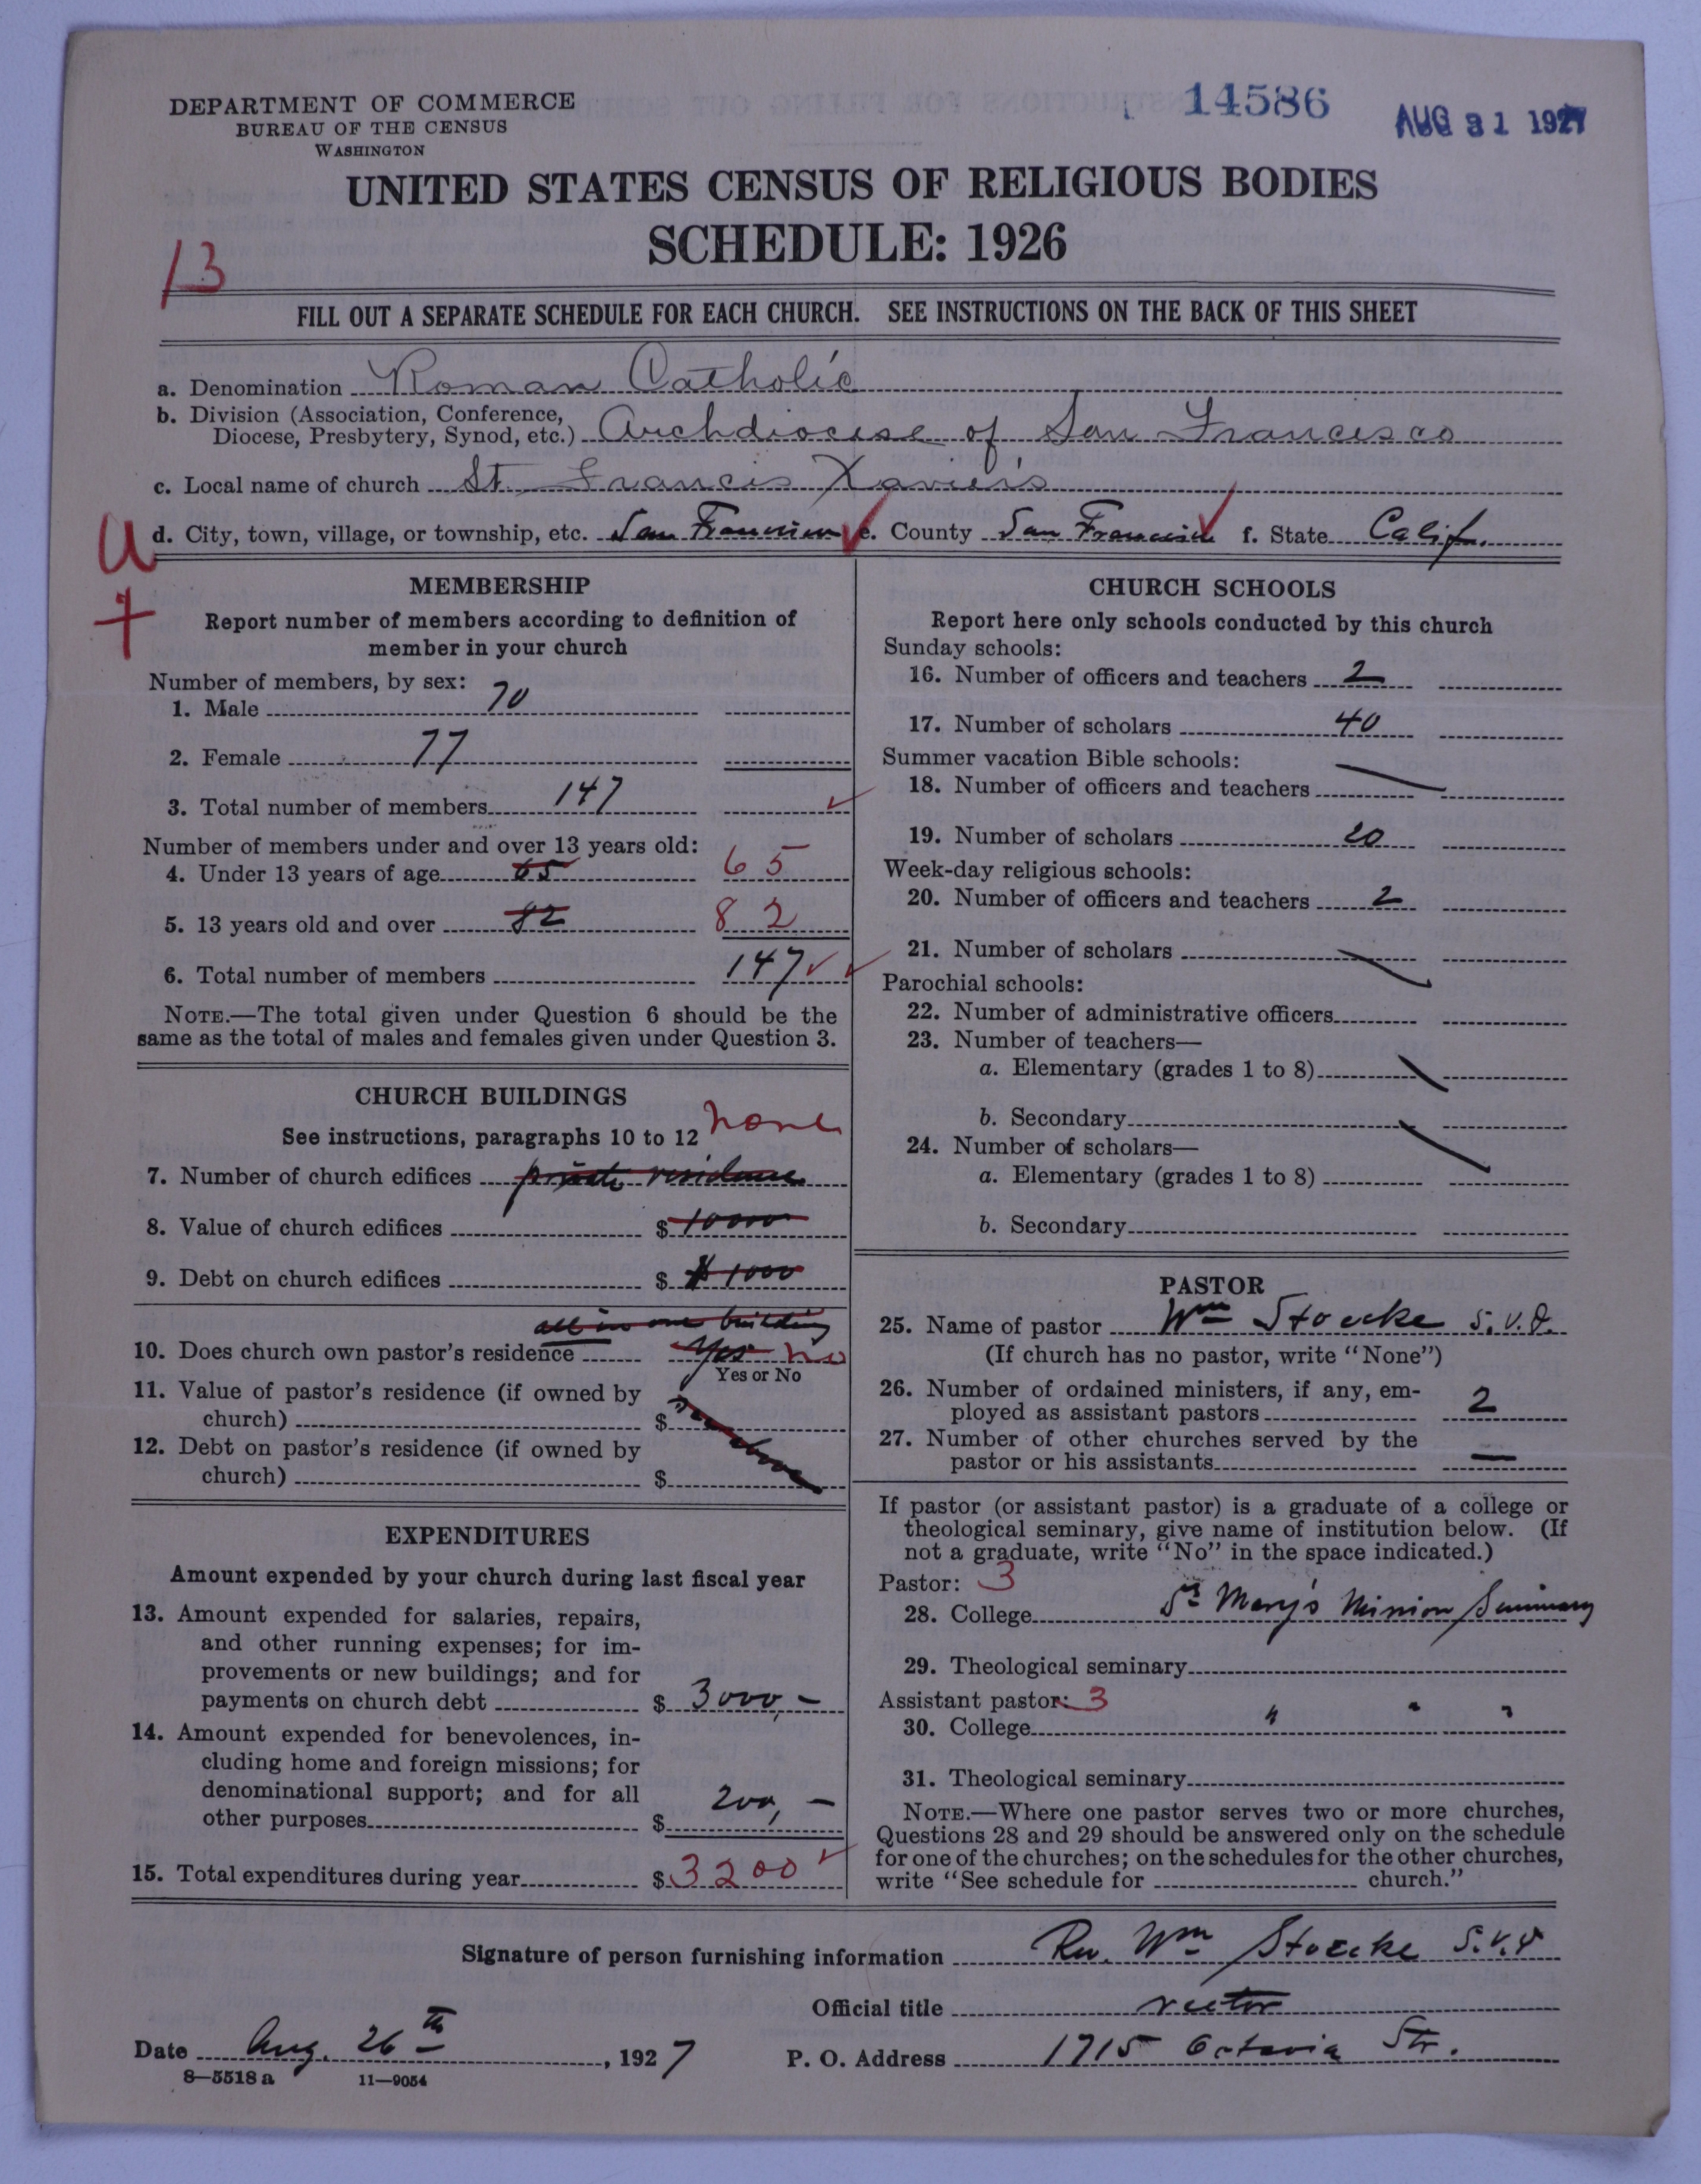 DEPARTMENT OF COMMERCE
BUREAU OF THE CENSUS
WASHINGTON
14586
AUG 31 1927
UNITED STATES CENSUS OF RELIGIOUS BODIES
SCHEDULE: 1926
13
FILL OUT A SEPARATE SCHEDULE FOR EACH CHURCH. SEE INSTRUCTIONS ON THE BACK OF THIS SHEET
a. Denomination Roman Catholic
b. Division (Association, Conference,
Diocese, Presbytery, Synod, etc.) Archdiocese of San Francisco
c. Local name of church St. Francis Xavier's
U d. City, town, village, or township, etc. San Francisco e. County San Francisco f. State Calif.
MEMBERSHIP
Report number of members according to definition of
member in your church
Number of members, by sex:
1. Male 70
2. Female 77
3. Total number of members 147
Number of members under and over 13 years old:
4. Under 13 years of age 65 65
5. 13 years old and over 82 82
6. Total number of members 147
NOTE.—The total given under Question 6 should be the
same as the total of males and females given under Question 3.
CHURCH BUILDINGS
See instructions, paragraphs 10 to 12 none
7. Number of church edifices private residence
8. Value of church edifices $ 10000
9. Debt on church edifices $ 1000
all in one building
10. Does church own pastor's residence Yes No
Yes or No
11. Value of pastor's residence (if owned by
church) $ see above
12. Debt on pastor's residence (if owned by
church) $
EXPENDITURES
Amount expended by your church during last fiscal year
13. Amount expended for salaries, repairs,
and other running expenses; for im-
provements or new buildings; and for
payments on church debt $ 3000,–
14. Amount expended for benevolences, in-
cluding home and foreign missions; for
denominational support; and for all
other purposes $ 200,–
15. Total expenditures during year $ 3200
CHURCH SCHOOLS
Report here only schools conducted by this church
Sunday schools:
16. Number of officers and teachers 2
17. Number of scholars 40
Summer vacation Bible schools:
18. Number of officers and teachers —
19. Number of scholars 20
Week-day religious schools:
20. Number of officers and teachers 2
21. Number of scholars —
Parochial schools:
22. Number of administrative officers
23. Number of teachers—
a. Elementary (grades 1 to 8) —
b. Secondary —
24. Number of scholars—
a. Elementary (grades 1 to 8)
b. Secondary
PASTOR
25. Name of pastor Wm Stoecke S.V.D.
(If church has no pastor, write "None")
26. Number of ordained ministers, if any, em-
ployed as assistant pastors 2
27. Number of other churches served by the
pastor or his assistants —
If pastor (or assistant pastor) is a graduate of a college or
theological seminary, give name of institution below. (If
not a graduate, write "No" in the space indicated.)
Pastor: 3
28. College St Mary's Mission Seminary
29. Theological seminary
Assistant pastor: 3
30. College " " "
31. Theological seminary
NOTE.—Where one pastor serves two or more churches,
Questions 28 and 29 should be answered only on the schedule
for one of the churches; on the schedules for the other churches,
write "See schedule for church."
Signature of person furnishing information Rev. Wm Stoecke S.V.D
Official title rector
Date Aug. 26th, 1927 P. O. Address 1715 Octavia Str.
8—5518a 11—9054